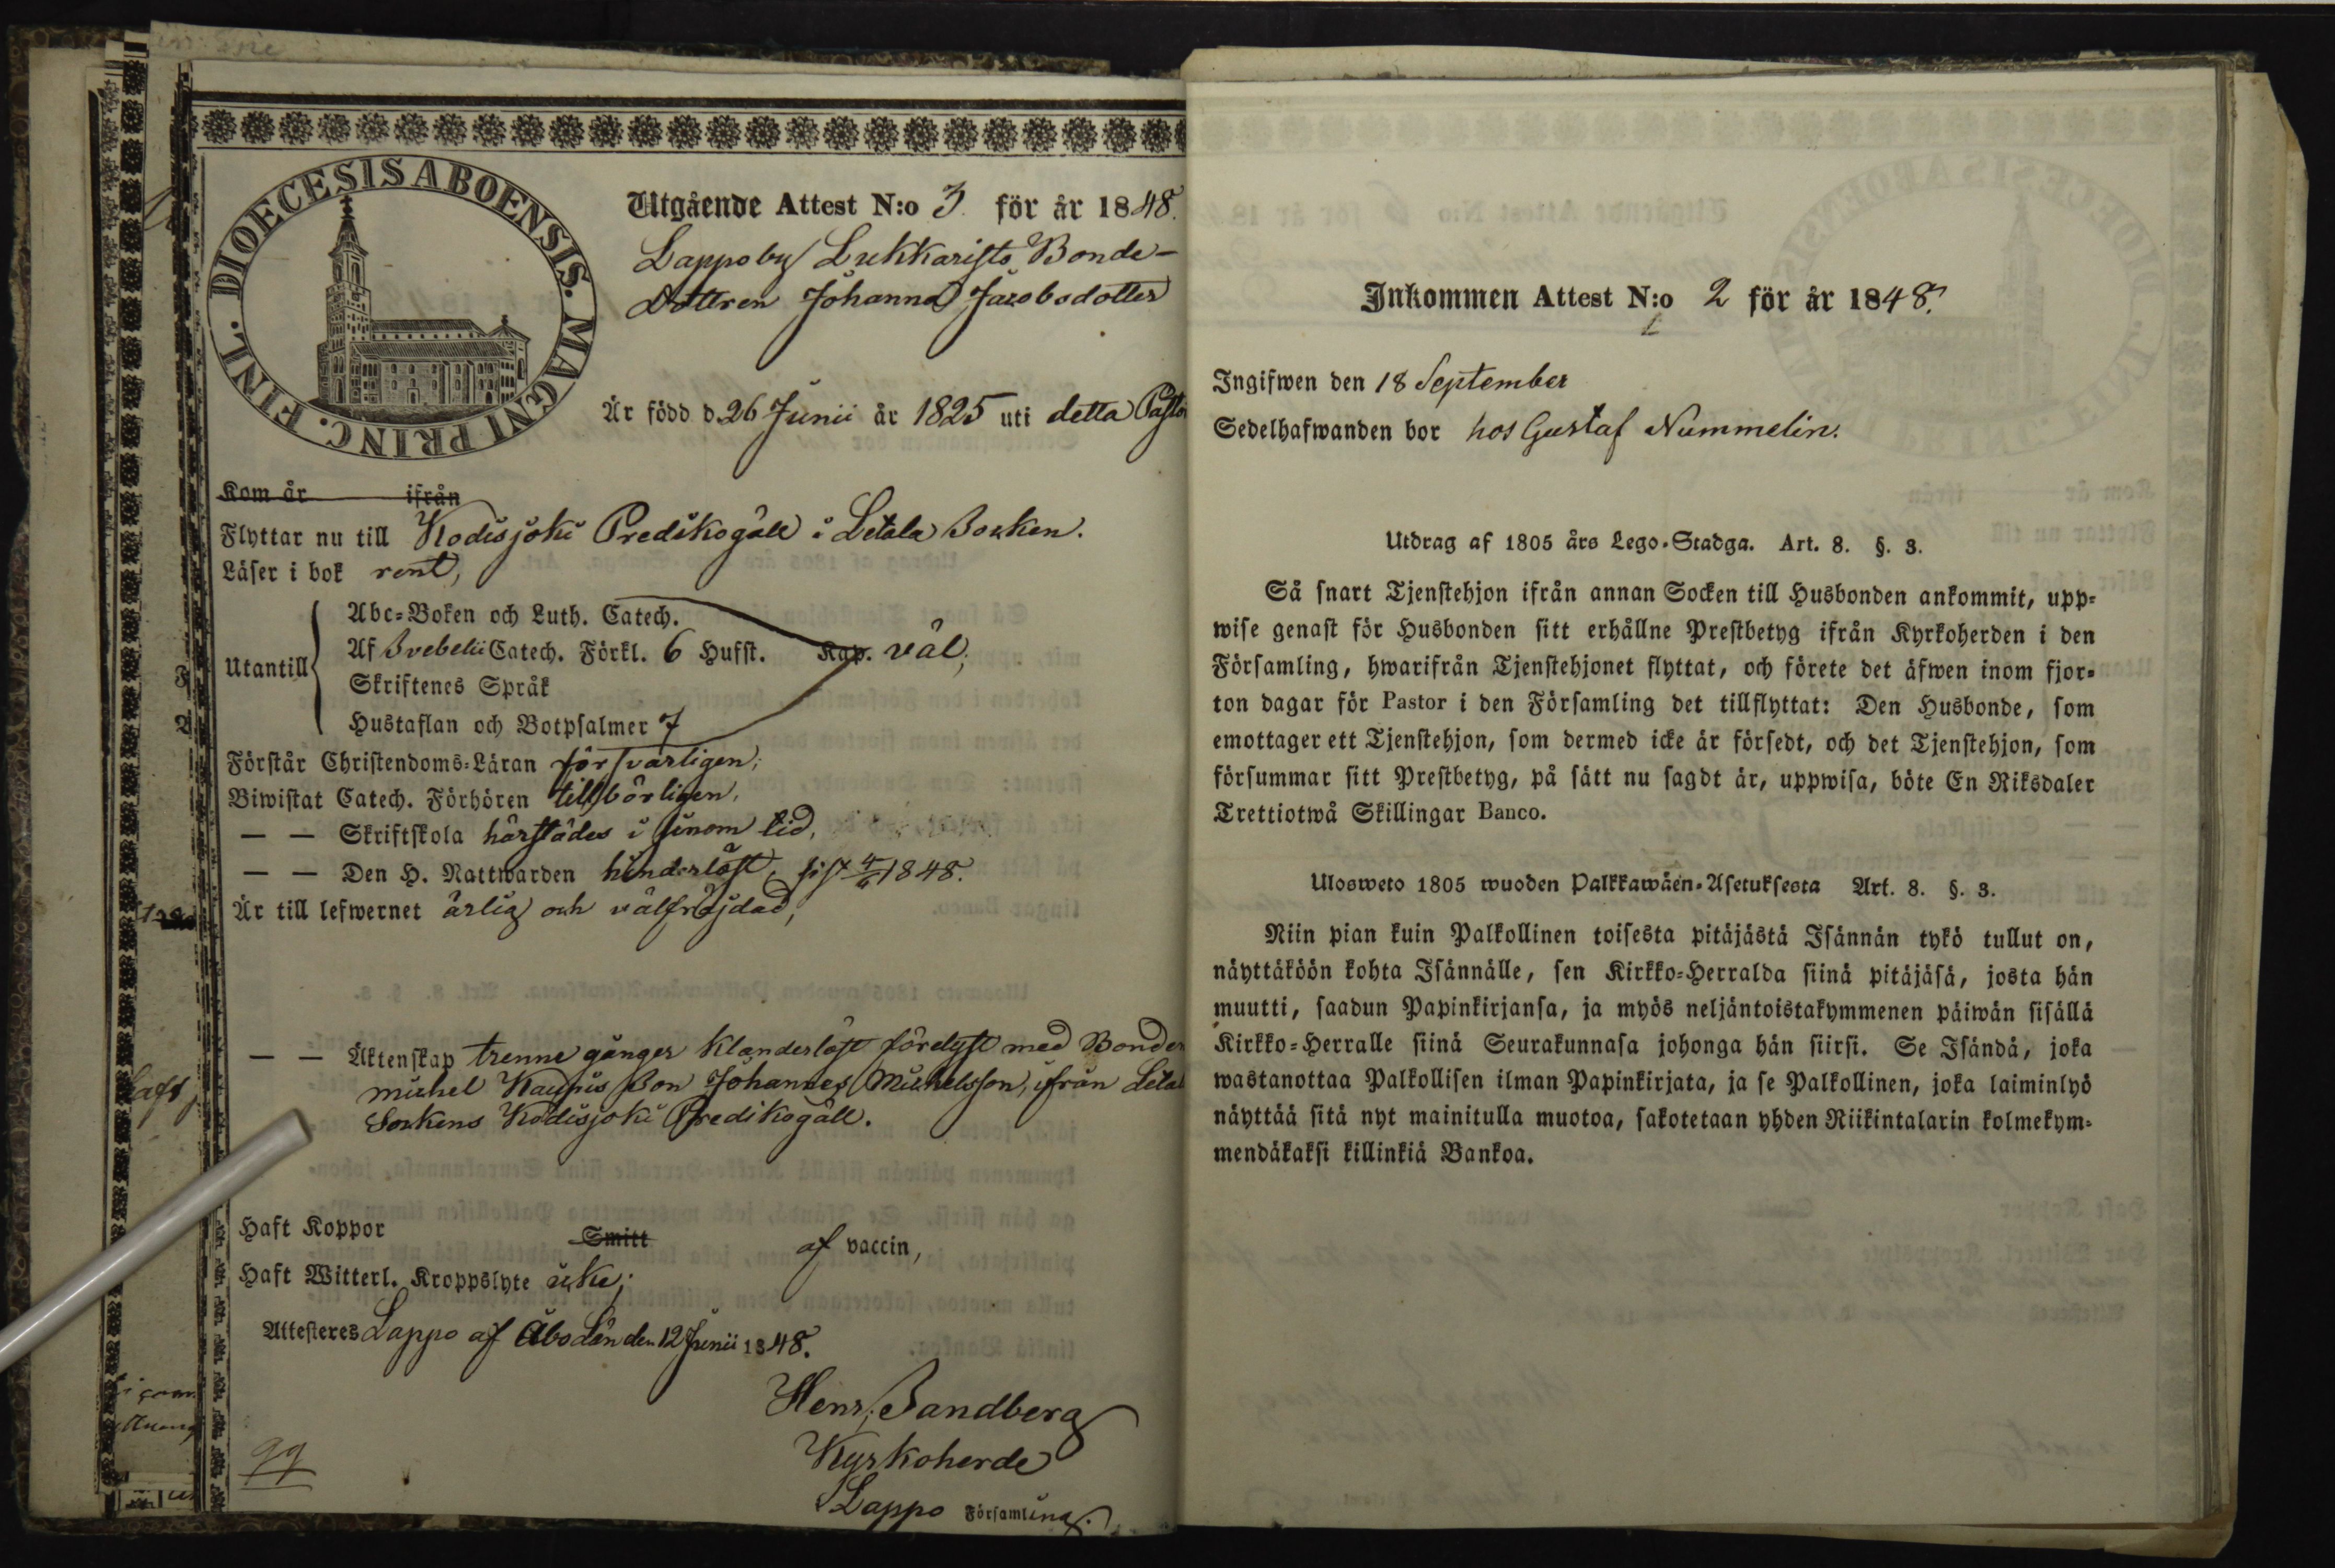 DIOECESIS ABOENSIS. MAGNI PRINC. FINL.
Utgående Attest N:o 3. för år 1848.
Lappo by Lukkarists Bonde-
dottren Johanna Jacobsdotter
Är född d. 26 Junii år 1825 uti detta Pasto
Kom år ifrån
Flyttar nu till Kodisjoki Predikogäll i Letala Socken.
Läser i bok rent,
Abc-Boken och Luth. Catech.
Utantill Af Svebelii Catech. Förkl. 6 Hufst. Kap. väl,
Skriftenes Språk
Hustaflan och Botpsalmer 7
Förstår Christendoms-Läran försvarligen;
Biwistat Catech. Förhören tillbörligen,
— — Skriftskola härstädes i sinom tid,
— — Den H. Nattwarden hinderlöst, sist 4/6 1848.
Är till lefwernet ärlig och välfräjdad,
— — Äktenskap trenne gånger klanderlöst förelyst med Bonden
Michel Kaupis Son Johannes Michelsson, ifrån Letal
Sockens Kodisjoki Predikogäll.
Haft Koppor Smitt af vaccin,
Haft Witterl. Kroppslyte icke;
Attesteres Lappo af Åbo Län den 12 Junii 1848.
Henr. Sandberg
Kyrkoherde
i Lappo Församling.
99
Inkommen Attest N:o 2 för år 1848.
Ingifwen den 18 September
Sedelhafwanden bor hos Gustaf Nummelin.
Utdrag af 1805 års Lego-Stadga. Art. 8. §. 3.
Så snart Tjenstehjon ifrån annan Socken till Husbonden ankommit, upp-
wise genast för Husbonden sitt erhållne Prestbetyg ifrån Kyrkoherden i den
Församling, hwarifrån Tjenstehjonet flyttat, och förete det äfwen inom fjor-
ton dagar för Pastor i den Församling det tillflyttat: Den Husbonde, som
emottager ett Tjenstehjon, som dermed icke är försedt, och det Tjenstehjon, som
försummar sitt Prestbetyg, på sätt nu sagdt är, uppwisa, böte En Riksdaler
Trettiotwå Skillingar Banco.
Ulosweto 1805 wuoden Palkkawäen-Asetuksesta Art. 8. §. 3.
Niin pian kuin Palkollinen toisesta pitäjästä Isännän tykö tullut on,
näyttäköön kohta Isännälle, sen Kirkko-Herralda siinä pitäjäsä, josta hän
muutti, saadun Papinkirjansa, ja myös neljäntoistakymmenen päiwän sisällä
Kirkko-Herralle siinä Seurakunnasa johonga hän siirsi. Se Isändä, joka
wastanottaa Palkollisen ilman Papinkirjata, ja se Palkollinen, joka laiminlyö
näyttää sitä nyt mainitulla muotoa, sakotetaan yhden Riikintalarin kolmekym-
mendäkaksi killinkiä Bankoa.